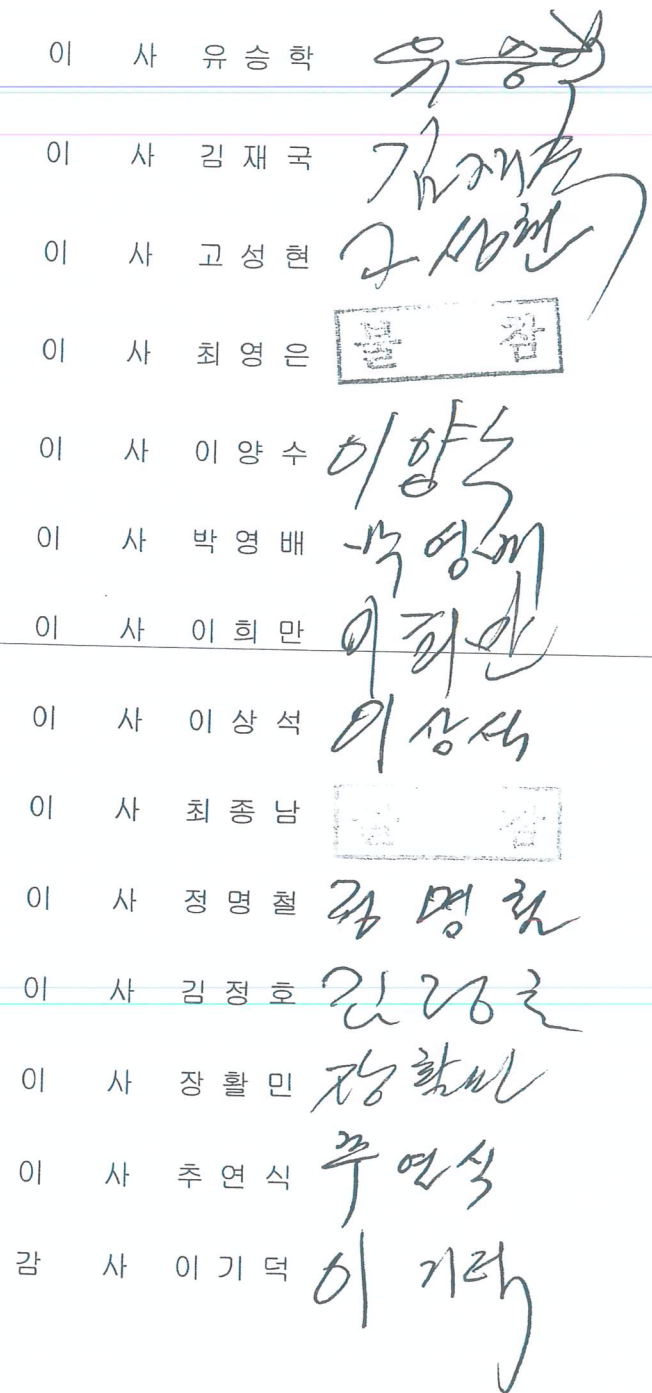 이 사 유 승 학 유승학
이 사 김 재 국 김재국
이 사 고 성 현 고성현
이 사 최 영 은 불 참
이 사 이 양 수 이양수
이 사 박 영 배 박영배
이 사 이 희 만 이희만
이 사 이 상 석 이상석
이 사 최 종 남 불 참
이 사 정 명 철 정명철
이 사 김 정 호 김정호
이 사 장 활 민 장활민
이 사 추 연 식 추연식
감 사 이 기 덕 이기덕